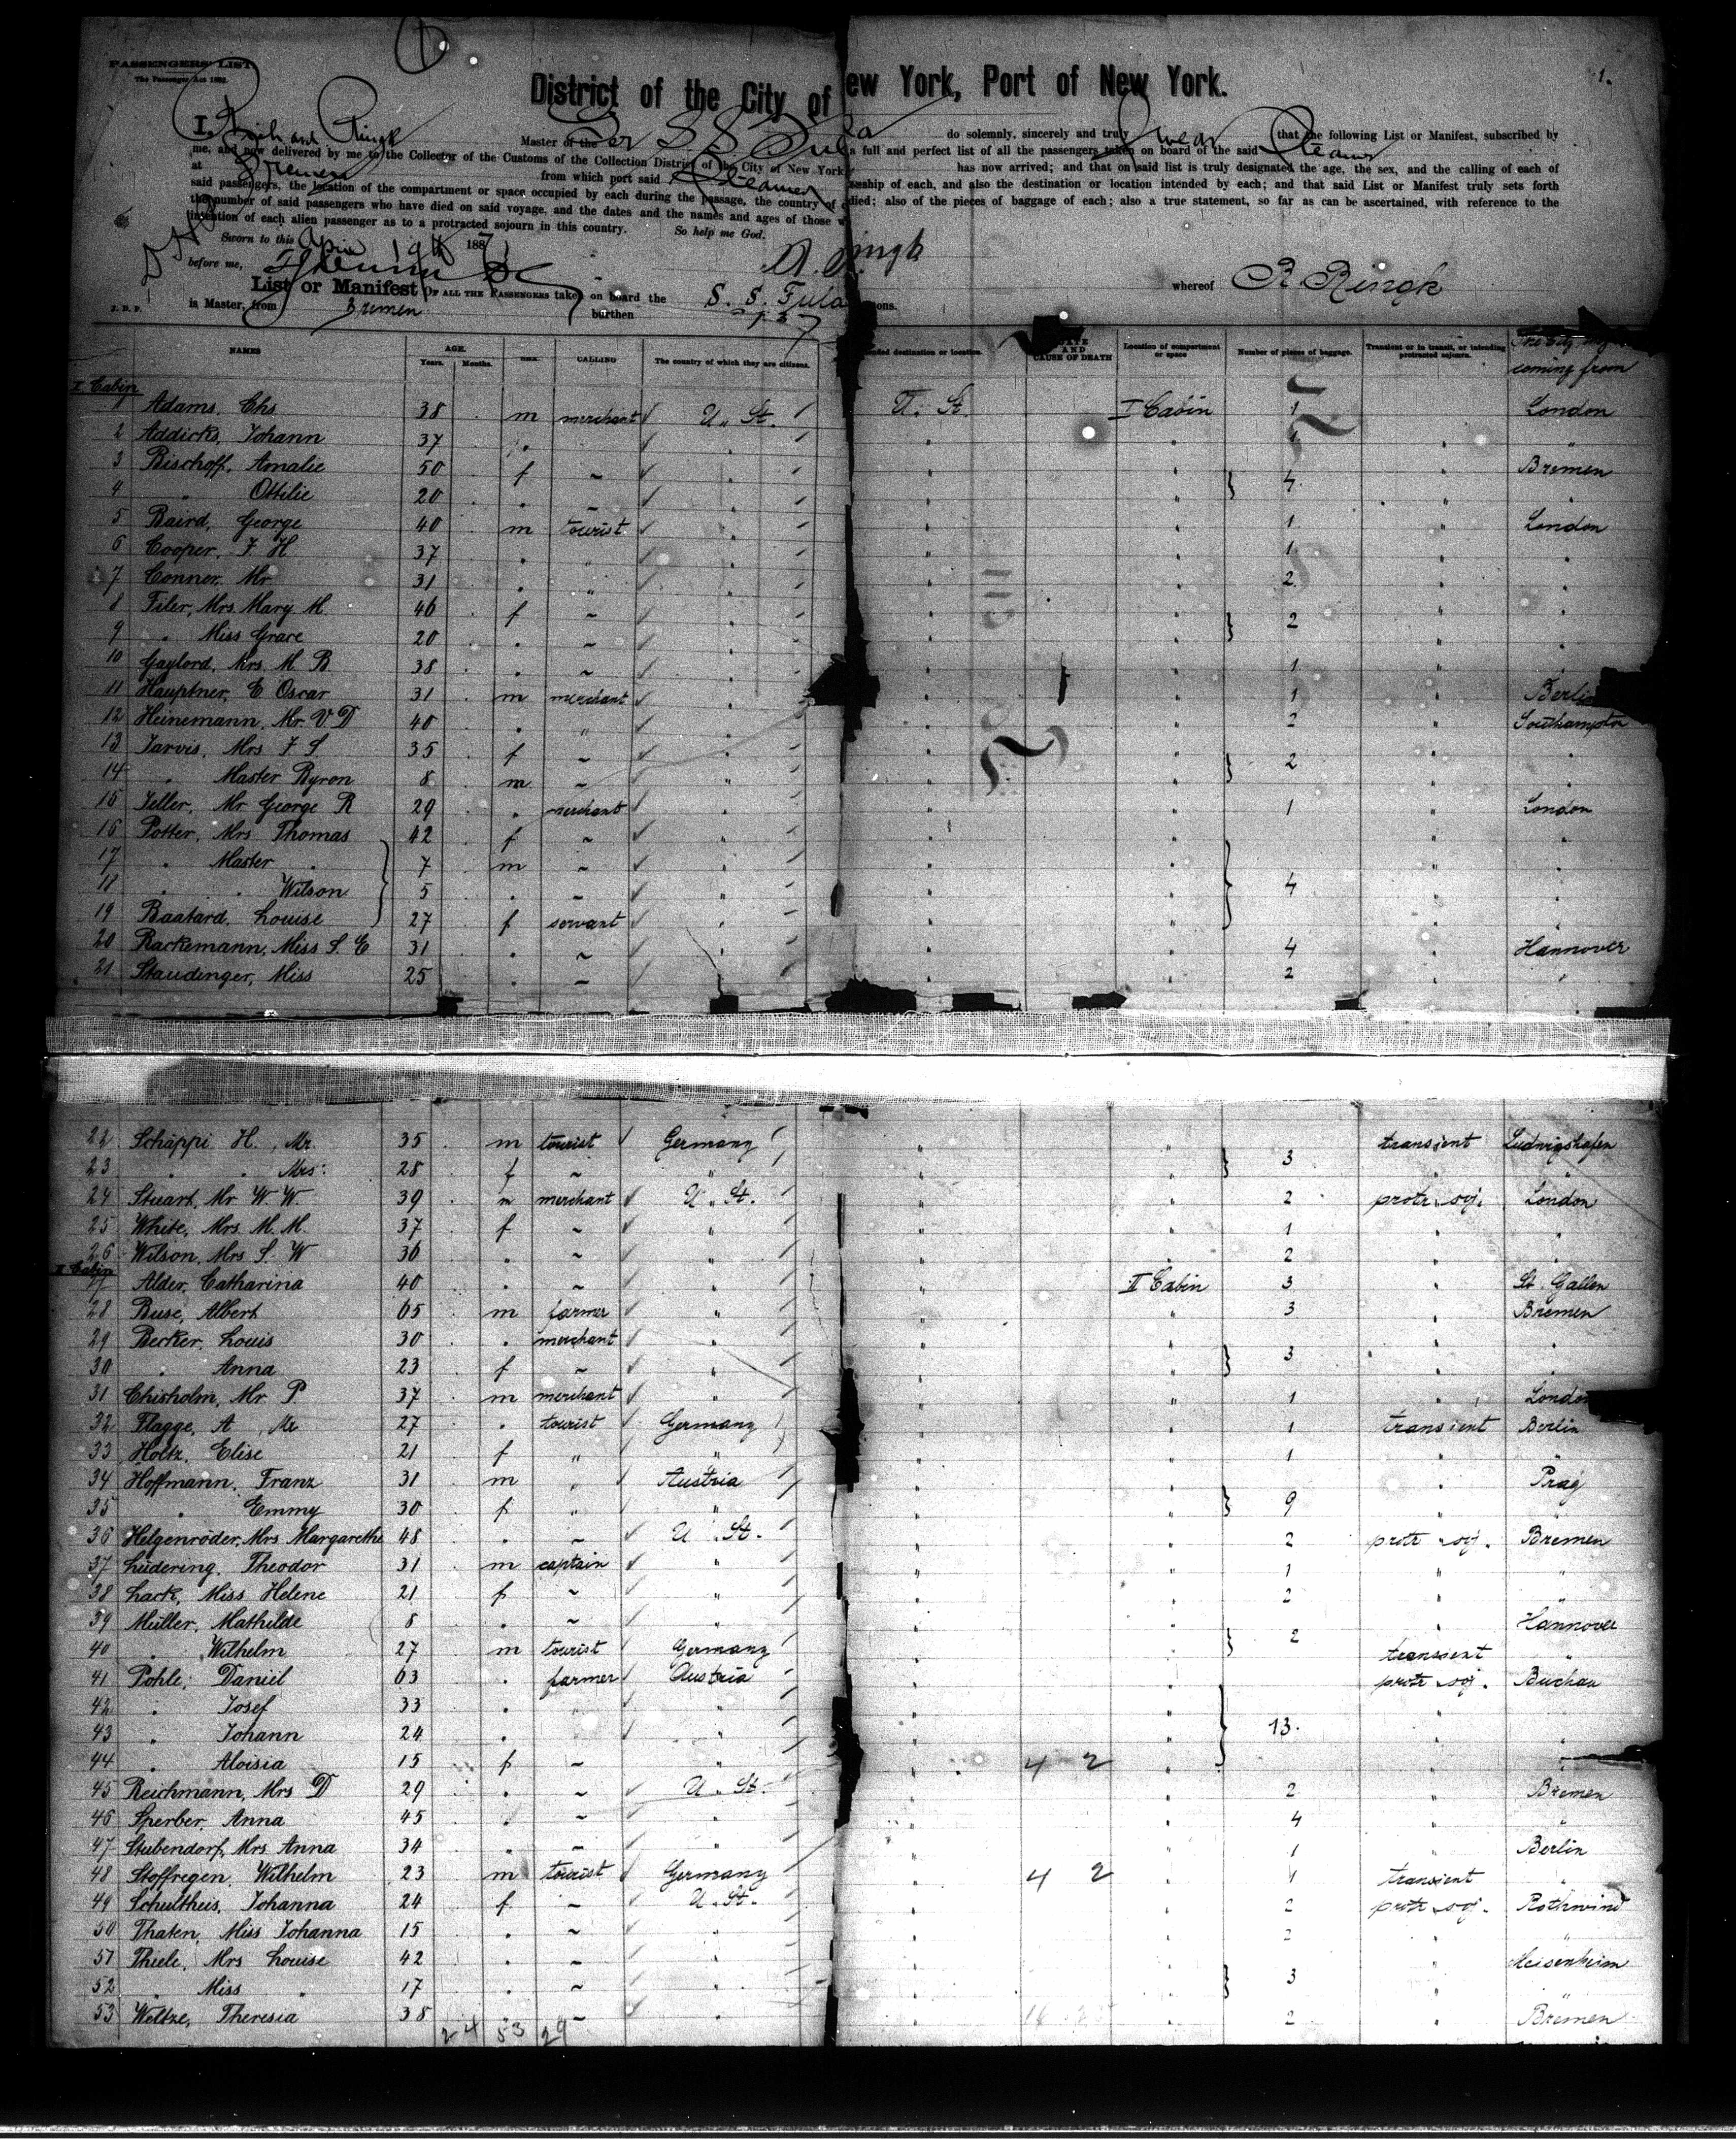 PASSENGERS' LIST
The Passenger Act 1882.
1
1.
District of the City of New York, Port of New York.
I, Richard Ringk Master of the Ger S S Fulda do solemnly, sincerely and truly swear that the following List or Manifest, subscribed by
me, and now delivered by me to the Collector of the Customs of the Collection District of the City of New York a full and perfect list of all the passengers taken on board of the said Steamer
at Bremen from which port said Steamer has now arrived; and that on said list is truly designated the age, the sex, and the calling of each of
said passengers, the location of the compartment or space occupied by each during the passage, the country of citizenship of each, and also the destination or location intended by each; and that said List or Manifest truly sets forth
the number of said passengers who have died on said voyage, and the dates and the names and ages of those who died; also of the pieces of baggage of each; also a true statement, so far as can be ascertained, with reference to the
intention of each alien passenger as to a protracted sojourn in this country. So help me God.
Sworn to this April 19th 1887
before me, R. Ringk
List or Manifest OF ALL THE PASSENGERS taken on board the S. S. Fulda whereof R Ringk
is Master, from Bremen burthen tons.
NAMES AGE. Years. Months. SEX. CALLING The country of which they are citizens. Intended destination or location. DATE AND CAUSE OF DEATH Location of compartment or space Number of pieces of baggage. Transient or in transit, or intending protracted sojourn. coming from
I Cabin
1 Adams, Chs 38 m merchant U. St. U. St. I Cabin 1 London
2 Addicks, Johann 37 " " " " 1 " "
3 Bischoff, Amalie 50 f ~ " " " } 4 " Bremen
4 " Ottilie 20 " ~ " " " " "
5 Baird, George 40 m tourist " " " 1 " London
6 Cooper, F H 37 " " " " " 1 " "
7 Conner, Mr 31 " " " " " 2 " "
8 Filer, Mrs Mary M. 46 f ~ " " " } 2 " "
9 " Miss Grace 20 " ~ " " " " "
10 Gaylord, Mrs M. B 38 " ~ " " " 1 " "
11 Hauptner, E Oscar 31 m merchant " " " 1 " Berlin
12 Heinemann, Mr V D 40 " " " " " 2 " Southampton
13 Jarvis, Mrs F S 35 f ~ " " " } 2 " "
14 " Master Byron 8 m ~ " " " " "
15 Jeller, Mr George R 29 " merchant " " " 1 " London
16 Potter, Mrs Thomas 42 f ~ " " " } " "
17 " Master " 7 m ~ " " " " "
18 " " Wilson 5 " ~ " " " 4 " "
19 Baatard, Louise 27 f servant " " " " "
20 Rackemann, Miss S. E 31 " ~ " " " 4 " Hannover
21 Staudinger, Miss 25 " ~ " " " 2 " "
22 Schäppi H., Mr. 35 m tourist Germany " " } 3 transient Ludwigshafen
23 " " Mrs. 28 f ~ " " " " "
24 Stuart, Mr W W 39 m merchant U. St. " " 2 protr soj. London
25 White, Mrs M. M. 37 f ~ " " " 1 " "
26 Wilson, Mrs S. W 36 " ~ " " " 2 " "
II Cabin
27 Alder, Catharina 40 " ~ " " II Cabin 3 " St. Gallen
28 Buse, Albert 65 m farmer " " " 3 " Bremen
29 Becker, Louis 30 " merchant " " " } 3 " "
30 " Anna 23 f ~ " " " " "
31 Chisholm, Mr. P. 37 m merchant " " " 1 " London
32 Flagge, A, Mr 27 " tourist Germany " " 1 transient Berlin
33 Holtz, Elise 21 f " " " " 1 " "
34 Hoffmann, Franz 31 m " Austria " " } 9 " Prag
35 " Emmy 30 f " " " " " "
36 Helgenröder, Mrs Margarethe 48 " ~ U. St. " " 2 protr soj. Bremen
37 Lüdering, Theodor 31 m captain " " " 1 " "
38 Lack, Miss Helene 21 f ~ " " " 2 " "
39 Müller, Mathilde 8 " ~ " " " } 2 " Hannover
40 " Wilhelm 27 m tourist Germany " " transient "
41 Pohle, Daniel 63 " farmer Austria " " } protr soj. Buchau
42 " Josef 33 " " " " " " "
43 " Johann 24 " " " " " 13. " "
44 " Aloisia 15 f ~ " " 4 2 " " "
45 Reichmann, Mrs D 29 " ~ U. St. " " 2 " Bremen
46 Sperber, Anna 45 " ~ " " " 4 " "
47 Stubendorf, Mrs Anna 34 " ~ " " " 1 " Berlin
48 Stoffregen, Wilhelm 23 m tourist Germany " 4 2 " 1 transient "
49 Schultheis, Johanna 24 f ~ U. St. " " 2 protr soj. Rothwind
50 Thaten, Miss Johanna 15 " ~ " " " 2 " "
51 Thiele, Mrs Louise 42 " ~ " " " } 3 " Meisenheim
52 " Miss " 17 " ~ " " " " "
53 Weltze, Theresia 38 " ~ " " " 2 " Bremen
24 53 29